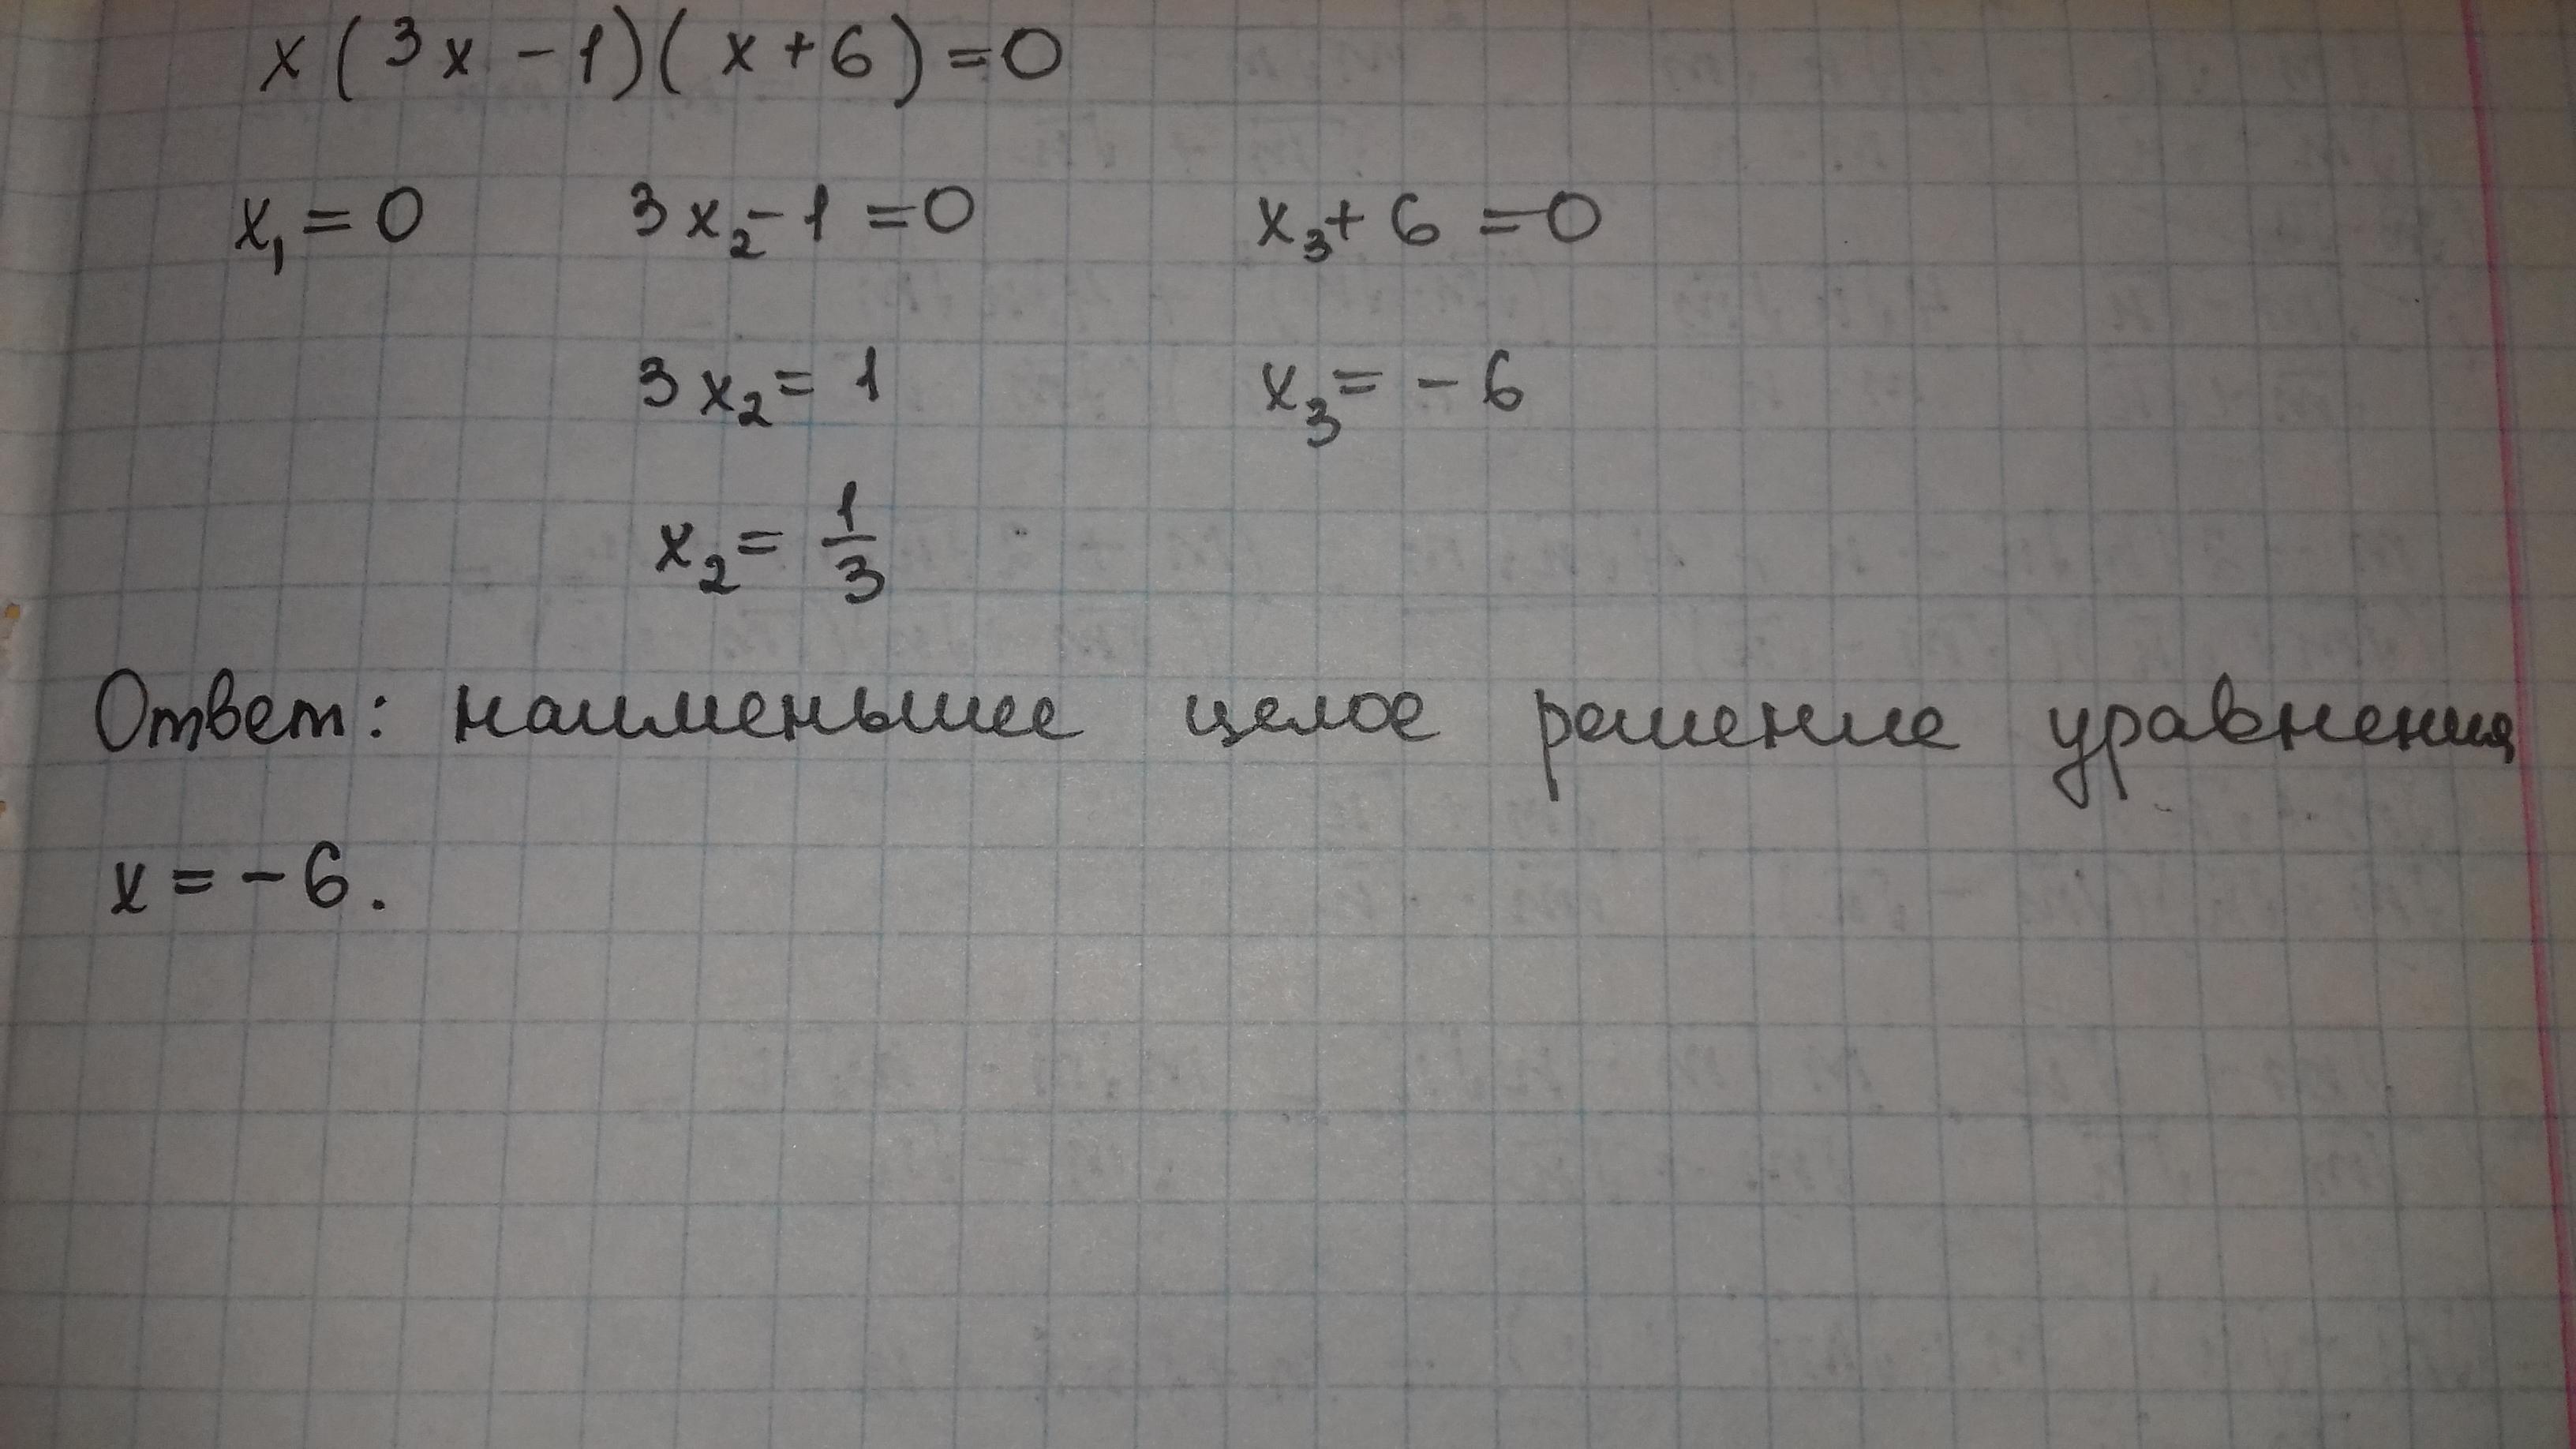 x(3x-1)(x+6)=0
x₁=0 3x₂-1=0 x₃+6=0
3x₂=1 x₃=-6
x₂=1/3
Ответ: наименьшее целое решение уравнения
x=-6.